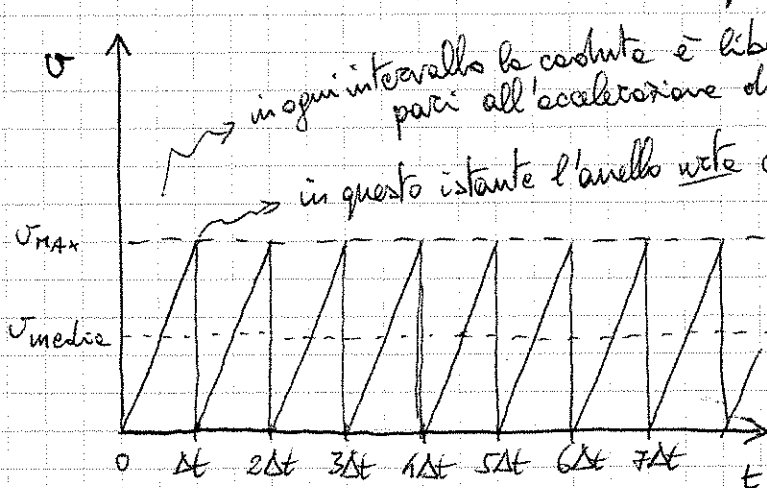 v
in ogni intervallo la caduta è lib
pari all'accelerazione d
in questo istante l'anello urta
v_MAX
v_media
0 Δt 2Δt 3Δt 4Δt 5Δt 6Δt 7Δt
t